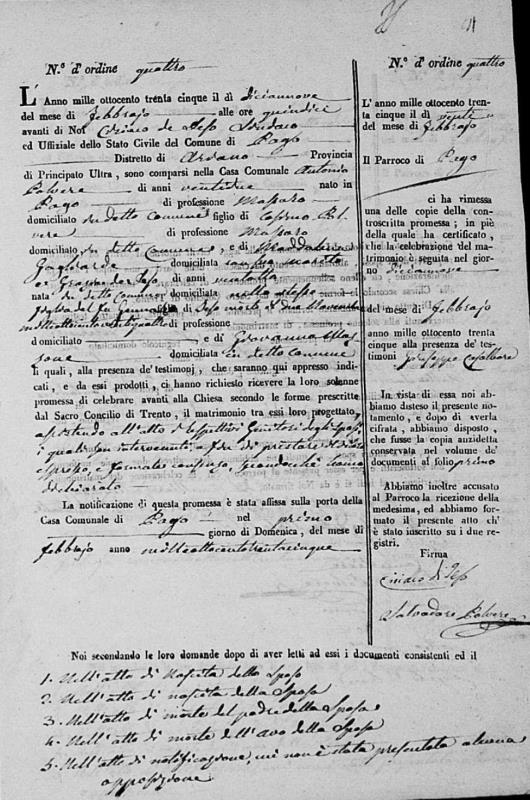 N.º d'ordine quattro
L'Anno mille ottocento trenta cinque il dì diciannove
del mese di febbrajo alle ore quindici
avanti di Noi Ciriaco de Ieso Sindaco
ed Uffiziale dello Stato Civile del Comune di Pago
Distretto di Ariano Provincia
di Principato Ultra, sono comparsi nella Casa Comunale Antonio
Polvere di anni ventidue nato in
Pago di professione Massaro
domiciliato in detto Comune figlio di Cosimo Pol
vere di professione Massaro
domiciliato in detto Comune, e di Maddalena
Gagliarde domiciliata con suo marito
e di anni ventotto
nata in detto Comune domiciliata nello stesso
figlia del fu Gennaro di Ieso morto
milleottocentoventiquattro di professione
domiciliato e di Giovanna Mas
sone domiciliata in detto Comune
li quali, alla presenza de' testimonj, che saranno qui appresso indi-
cati, e da essi prodotti, ci hanno richiesto ricevere la loro solenne
promessa di celebrare avanti alla Chiesa secondo le forme prescritte
dal Sacro Concilio di Trento, il matrimonio tra essi loro progettato,
assistendo all'atto i rispettivi Genitori degli Sposi,
i quali son intervenuti a fin di prestare il di loro
espresso, e formale consenso, siccome hanno
dichiarato
La notificazione di questa promessa è stata affissa sulla porta della
Casa Comunale di Pago nel primo
giorno di Domenica, del mese di
febbrajo anno milleottocentotrentacinque
N.º d'ordine quattro
L'anno mille ottocento tren-
ta cinque il dì venti
del mese di febbrajo
Il Parroco di Pago
ci ha rimessa
una delle copie della con-
troscritta promessa; in piè
della quale ha certificato,
che la celebrazione del ma-
trimonio è seguita nel gior-
no diciannove
del mese di febbrajo
anno mille ottocento trenta
cinque alla presenza de' tes-
timoni Giuseppe
In vista di essa noi ab-
biamo disteso il presente no-
tamento, e dopo di averla
cifrata, abbiamo disposto,
che fusse la copia anzidetta
conservata nel volume de'
documenti al folio primo
Abbiamo inoltre accusato
al Parroco la ricezione della
medesima, ed abbiamo for-
mato il presente atto ch'
è stato inscritto su i due re-
gistri.
Firma
Ciriaco di Ieso
Salvadore Polvere
Noi secondando le loro domande dopo di aver letti ad essi i documenti consistenti ed il
1. Nell'atto di nascita dello Sposo
2. Nell'atto di nascita della Sposa
3. Nell'atto di morte del padre della Sposa
4. Nell'atto di morte dell'avo della Sposa
5. Nell'atto di notificazione, cui non è stata presentata alcuna
opposizione